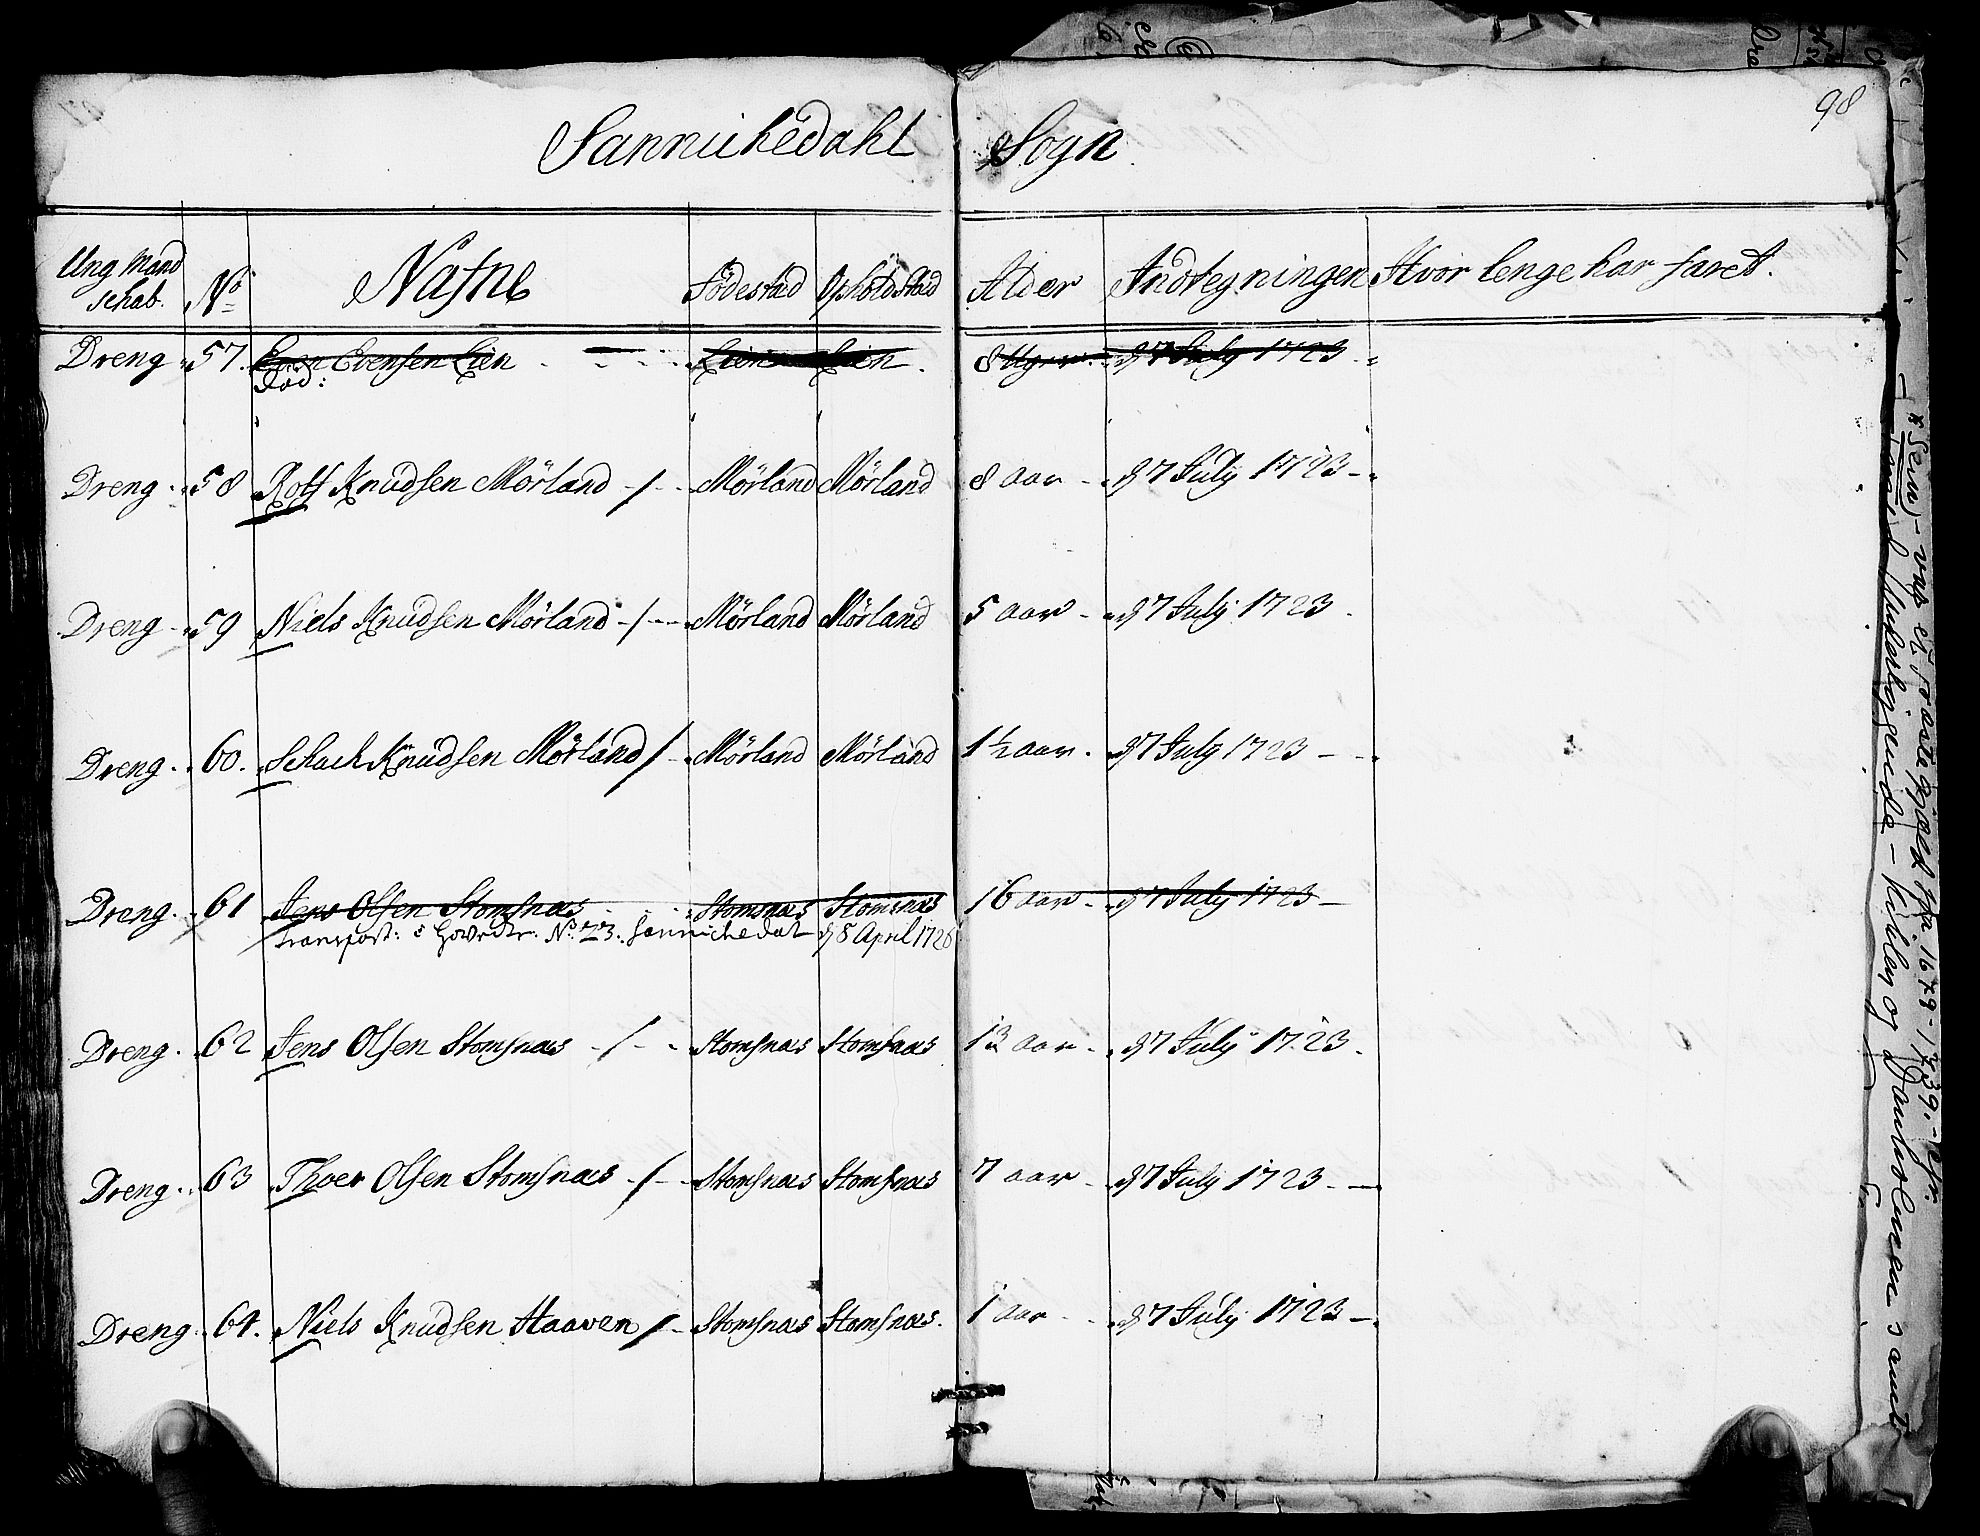 98
Sannichedahl Sogn
Ung Mand schab. No Nafne Födestæd Opholdstæd Alder Indtegningen Hvor lenge har faret.
Dreng 57. Even Evensen Lien Lien Lien. 8 d 7 July 1723
Död:
Dreng 58 Rolf Knudsen Mörland Mörland Mörland 8 aar d 7 July 1723
Dreng 59 Niels Knudsen Mörland Mörland Mörland 5 aar d 7 July 1723
Dreng 60. Schach Knudsen Mörland Mörland Mörland 1½ aar d 7 July 1723
Dreng 61 Jens Olsen Stomsnæs Stomsnæs Stomsnæs 16 aar d 7 July 1723
transport: No. 73. Sannichedal d 8 April 1726
Dreng 62 Jens Olsen Stomsnæs Stomsnæs Stomsnæs 13 aar d 7 July 1723
Dreng 63 Thoer Olsen Stomsnæs Stomsnæs Stomsnæs 7 aar d 7 July 1723
Dreng 64. Niels Knudsen Haaven Stomsnæs Stomsnæs. 1 aar d 7 July 1723